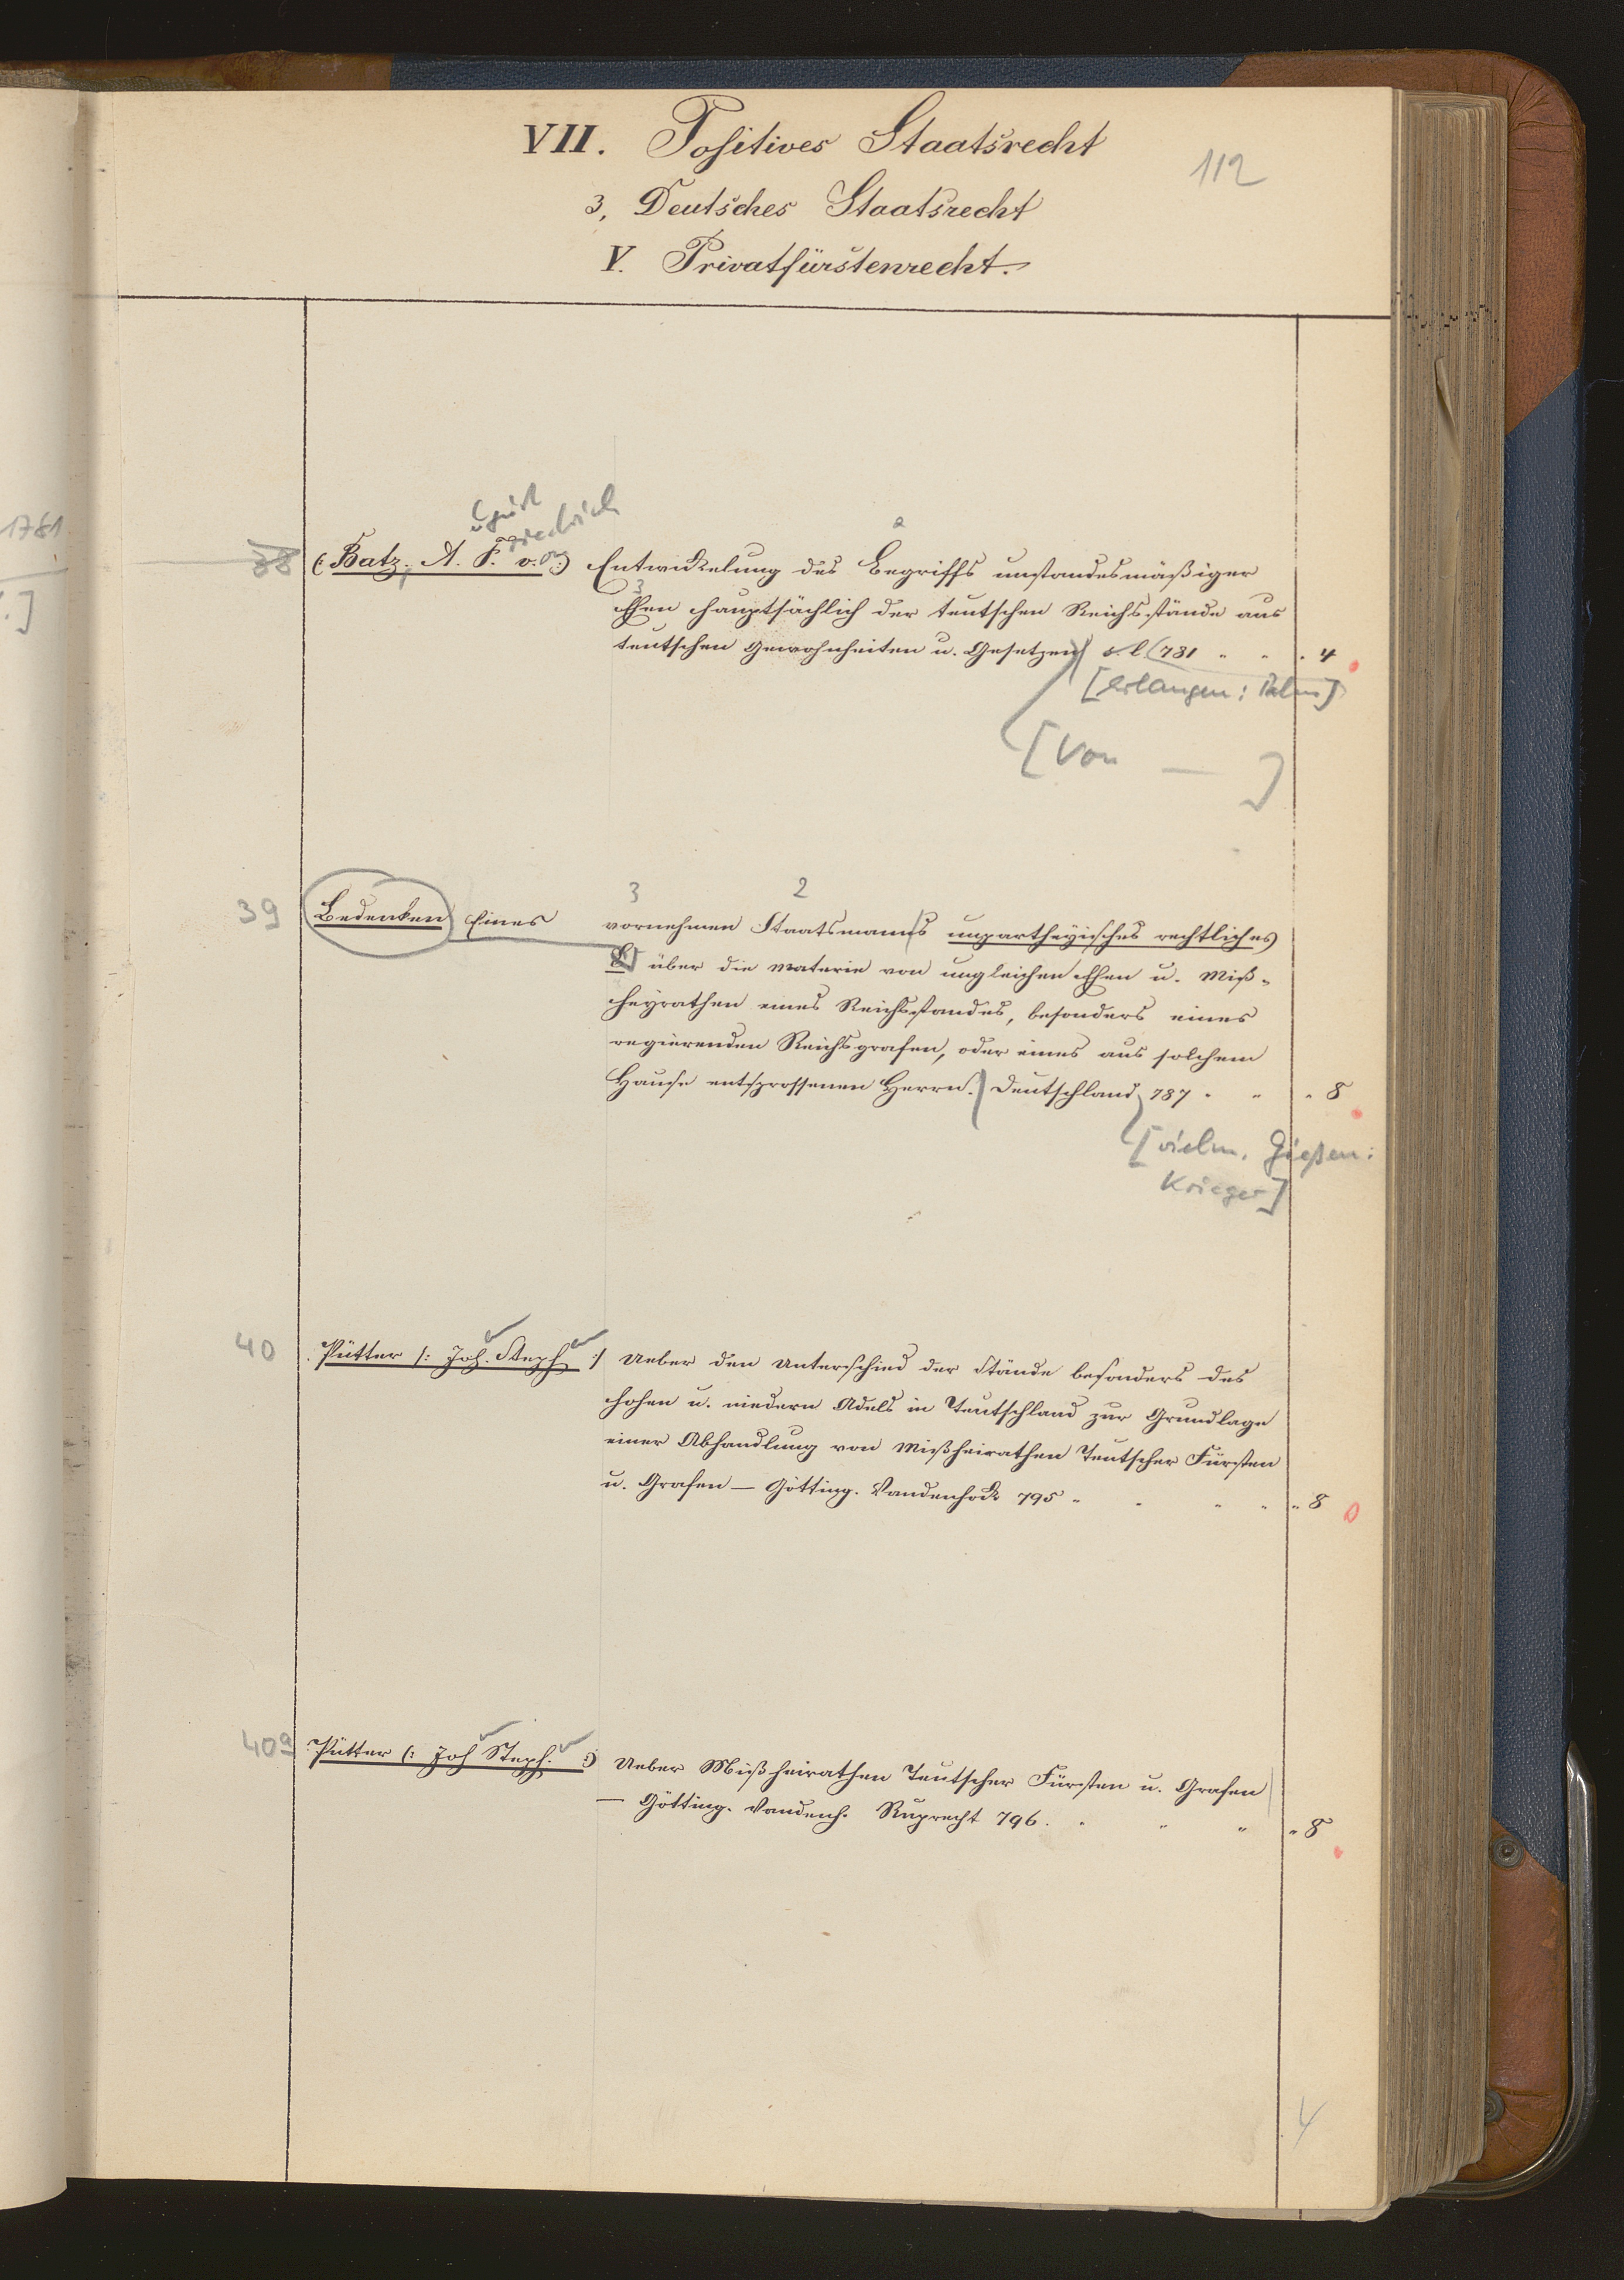 VII. Positives Staatsrecht
112
3, Deutsches Staatsrecht
V. Privatfürstenrecht.
1781
ugust
riedrich
38 (: Batz, A. F. v. :) Entwickelung des Begriffs unstandesmäßiger
Ehen hauptsächlich der teutschen Reichsstände aus
teutschen Gewohnheiten u. Gesetzen s. l. 781 " " " 4
[Erlangen: Palm]
[Von — ]
3 2
39 Bedenken Eines vornehmen Staatsmanns unpartheyisches rechtliches
B über die Materie von ungleichen Ehen u. Miß-
heyrathen eines Reichsstandes, besonders eines
regierenden Reichsgrafen, oder eines aus solchem
Hause entsprossenen Herrn. Deutschland 787 " " " 8
[vielm. Gießen:
Krieger]
40 Pütter /: Joh. Steph :/ Ueber den Unterschied der Stände besonders des
hohen u. niedern Adels in Teutschland zur Grundlage
einer Abhandlung von Mißheirathen Teutscher Fürsten
u. Grafen — Götting. Vandenhoek 795 " " " " " 8
40a Pütter (: Joh Steph. :) Ueber Mißheirathen Teutscher Fürsten u. Grafen
— Götting. Vandenh. Ruprecht 796. " " " " 8
4